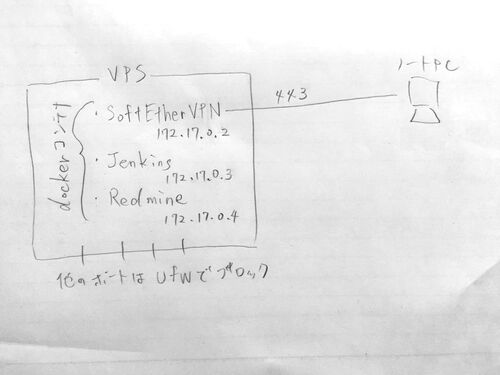 VPS
ノートPC
dockerコンテナ
・SoftEtherVPN
443
172.17.0.2
・Jenkins
172.17.0.3
・Redmine
172.17.0.4
他のポートはufwでブロック